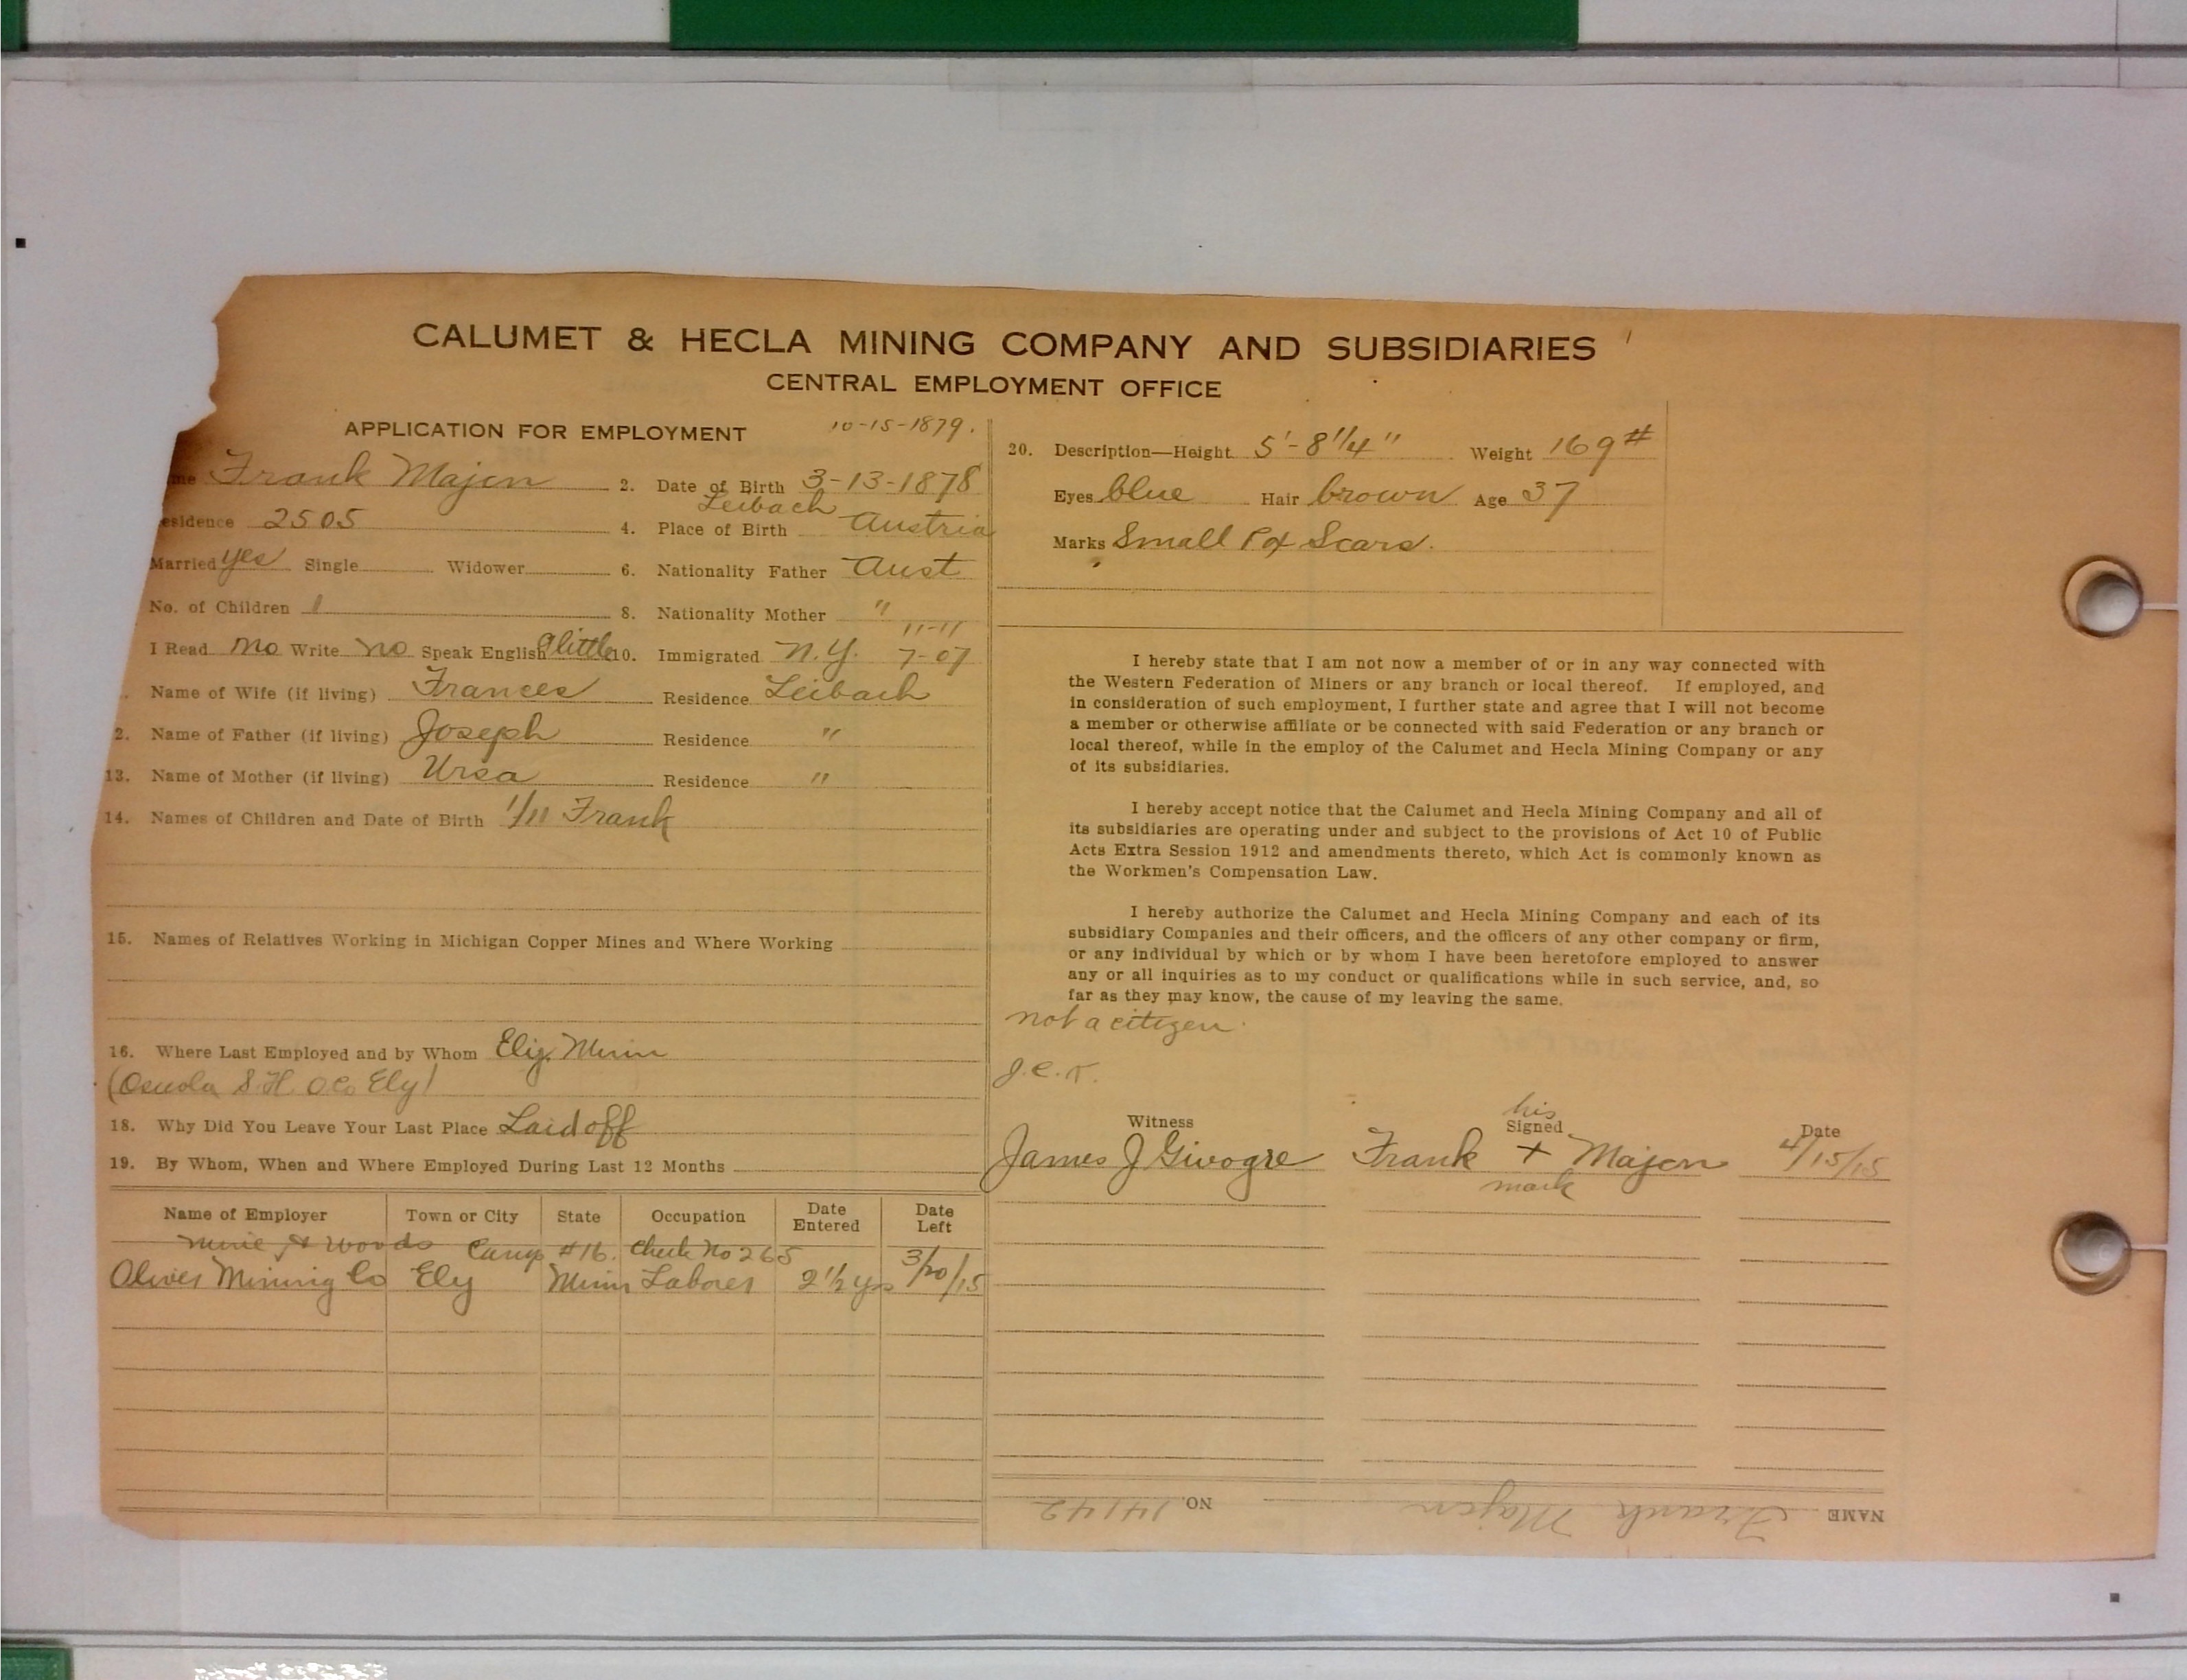 CALUMET & HECLA MINING COMPANY AND SUBSIDIARIES
CENTRAL EMPLOYMENT OFFICE
APPLICATION FOR EMPLOYMENT 10-15-1879.
me Frank Majen 2. Date of Birth 3-13-1878
Leibach
esidence 2505 4. Place of Birth Austria
Married yes Single Widower 6. Nationality Father Aust
No. of Children 1 8. Nationality Mother "
11-11
I Read no Write no Speak English a little 10. Immigrated N.Y. 7-07
Name of Wife (if living) Frances Residence Leibach
2. Name of Father (if living) Joseph Residence "
13. Name of Mother (if living) Ursa Residence "
14. Names of Children and Date of Birth 1/11 Frank
15. Names of Relatives Working in Michigan Copper Mines and Where Working
16. Where Last Employed and by Whom Ely, Minn
(Osceola S.H. Ely)
18. Why Did You Leave Your Last Place Laid off
19. By Whom, When and Where Employed During Last 12 Months
Name of Employer Town or City State Occupation Date Entered Date Left
Mine & woods Camp #16. Check No 265
Oliver Mining Co Ely Minn Laborer 2 1/2 yrs 3/20/15
20. Description—Height 5'-8 1/4" Weight 169#
Eyes blue Hair brown Age 37
Marks Small Pox Scars.
I hereby state that I am not now a member of or in any way connected with
the Western Federation of Miners or any branch or local thereof. If employed, and
in consideration of such employment, I further state and agree that I will not become
a member or otherwise affiliate or be connected with said Federation or any branch or
local thereof, while in the employ of the Calumet and Hecla Mining Company or any
of its subsidiaries.
I hereby accept notice that the Calumet and Hecla Mining Company and all of
its subsidiaries are operating under and subject to the provisions of Act 10 of Public
Acts Extra Session 1912 and amendments thereto, which Act is commonly known as
the Workmen's Compensation Law.
I hereby authorize the Calumet and Hecla Mining Company and each of its
subsidiary Companies and their officers, and the officers of any other company or firm,
or any individual by which or by whom I have been heretofore employed to answer
any or all inquiries as to my conduct or qualifications while in such service, and, so
far as they may know, the cause of my leaving the same.
not a citizen.
Witness his Signed Date
James J Givogre Frank + Majen 4/15/15
mark
NAME Frank Majen NO. 14142